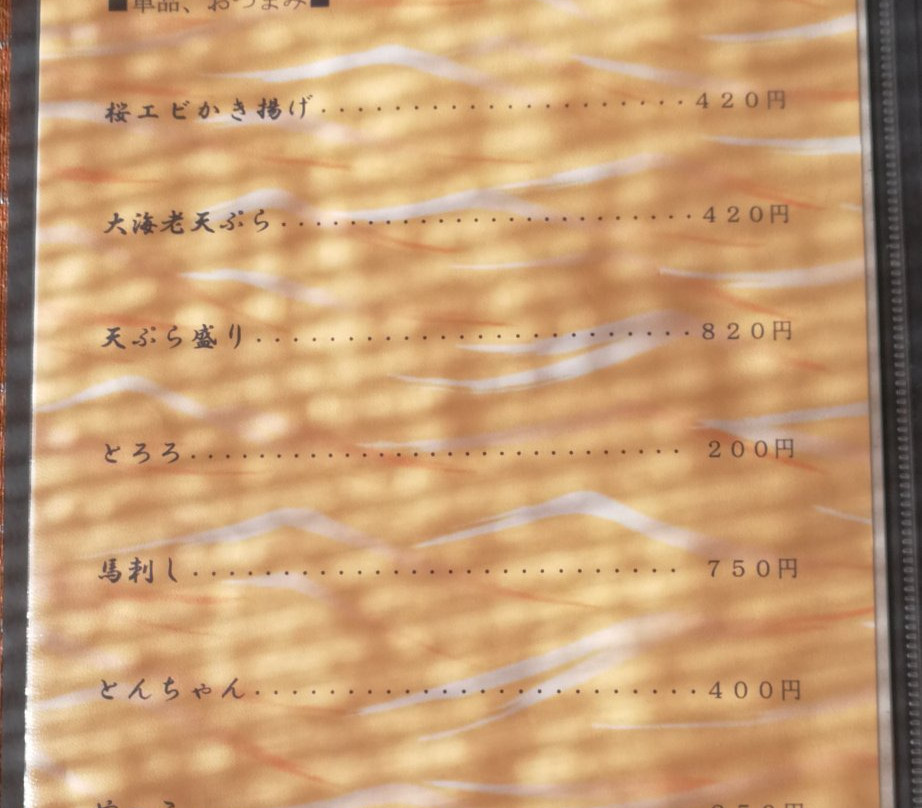 ■単品、おつまみ■
桜エビかき揚げ・・・・・・・・・・・・・・・・・・・・・420円
大海老天ぷら・・・・・・・・・・・・・・・・・・・・・・・・420円
天ぷら盛り・・・・・・・・・・・・・・・・・・・・・・・・・820円
とろろ・・・・・・・・・・・・・・・・・・・・・・・・・・・・・200円
馬刺し・・・・・・・・・・・・・・・・・・・・・・・・・・・・・750円
とんちゃん・・・・・・・・・・・・・・・・・・・・・・・・・400円